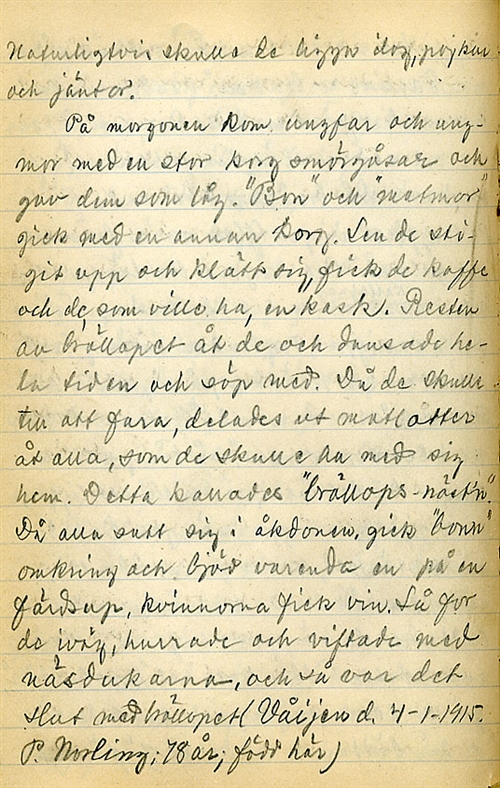 Naturligtvis skulle de ligga idag, pojkar
och jäntor.
På morgonen kom ungfar och ung-
mor med en stor korg smörgåsar och
gav dem som låg. "Bon" och "matmor"
gick med en annan korg. Sen de sti-
git upp och klätt sig, fick de kaffe
och de, som ville ha, en kask. Resten
av bröllopet åt de och dansade he-
la tiden och söp med. Då de skulle
till att fara, delades ut matlåtter
åt alla, som de skulle ha med sig
hem. Detta kallades "bröllops-näst'n"
Då alla satt sig i åkdonen, gick "bonn"
omkring och bjöd varenda en på en
färdsup, kvinnorna fick vin. Så for
de iväg, hurrade och viftade med
näsdukarna, och så var det
slut med bröllopet (Våijen d. 4-1-1915.
P. Norling; 78 år; född här)